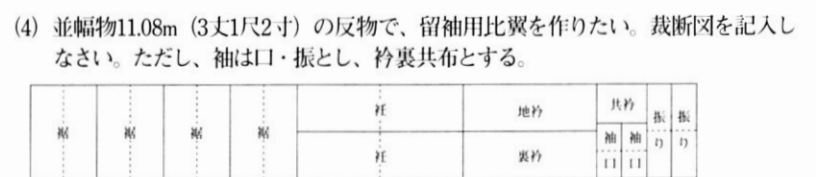 (4) 並幅物11.08m（3丈1尺2寸）の反物で、留袖用比翼を作りたい。裁断図を記入し
なさい。ただし、袖は口・振とし、衿裏共布とする。
裾 裾 裾 裾 衽 地衿 共衿 振り 振り
衽 裏衿 袖口 袖口